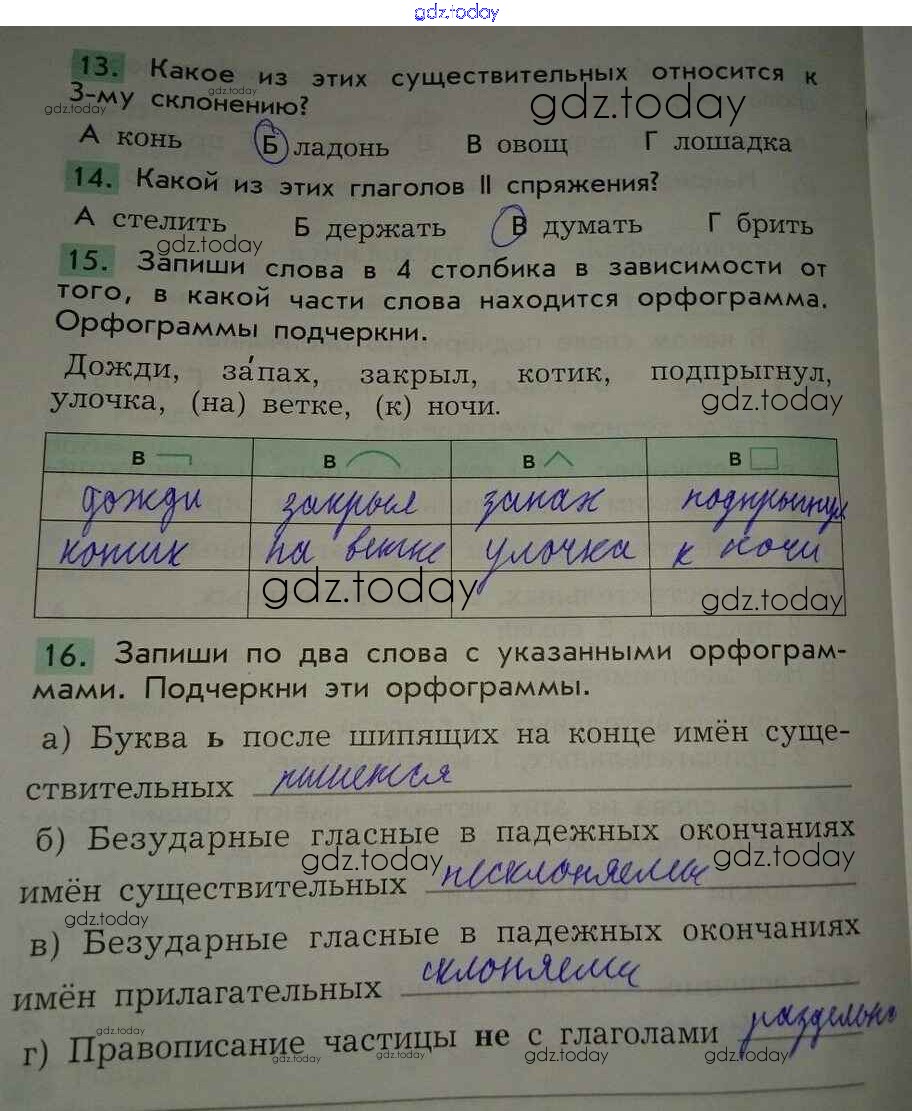 gdz.today
13. Какое из этих существительных относится к
3-му склонению?
gdz.today
gdz.today
gdz.today
А конь Б ладонь В овощ Г лошадка
14. Какой из этих глаголов II спряжения?
А стелить Б держать В думать Г брить
gdz.today
15. Запиши слова в 4 столбика в зависимости от
того, в какой части слова находится орфограмма.
Орфограммы подчеркни.
Дожди, за́пах, закрыл, котик, подпрыгнул,
улочка, (на) ветке, (к) ночи.
gdz.today
в в в в
дожди закрыл запах подпрыгнул
котик на ветке улочка к ночи
gdz.today gdz.today
16. Запиши по два слова с указанными орфограм-
мами. Подчеркни эти орфограммы.
а) Буква ь после шипящих на конце имён суще-
ствительных пишется
б) Безударные гласные в падежных окончаниях
gdz.today gdz.today
имён существительных несклоняемы
gdz.today
в) Безударные гласные в падежных окончаниях
имён прилагательных склоняеми
gdz.today
г) Правописание частицы не с глаголами раздельно
gdz.today gdz.today gdz.today gdz.today